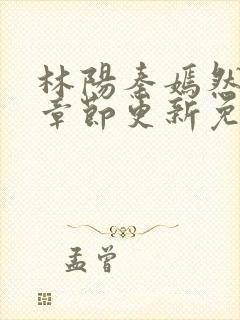 林陽秦嫣然
章節更新免
孟曾